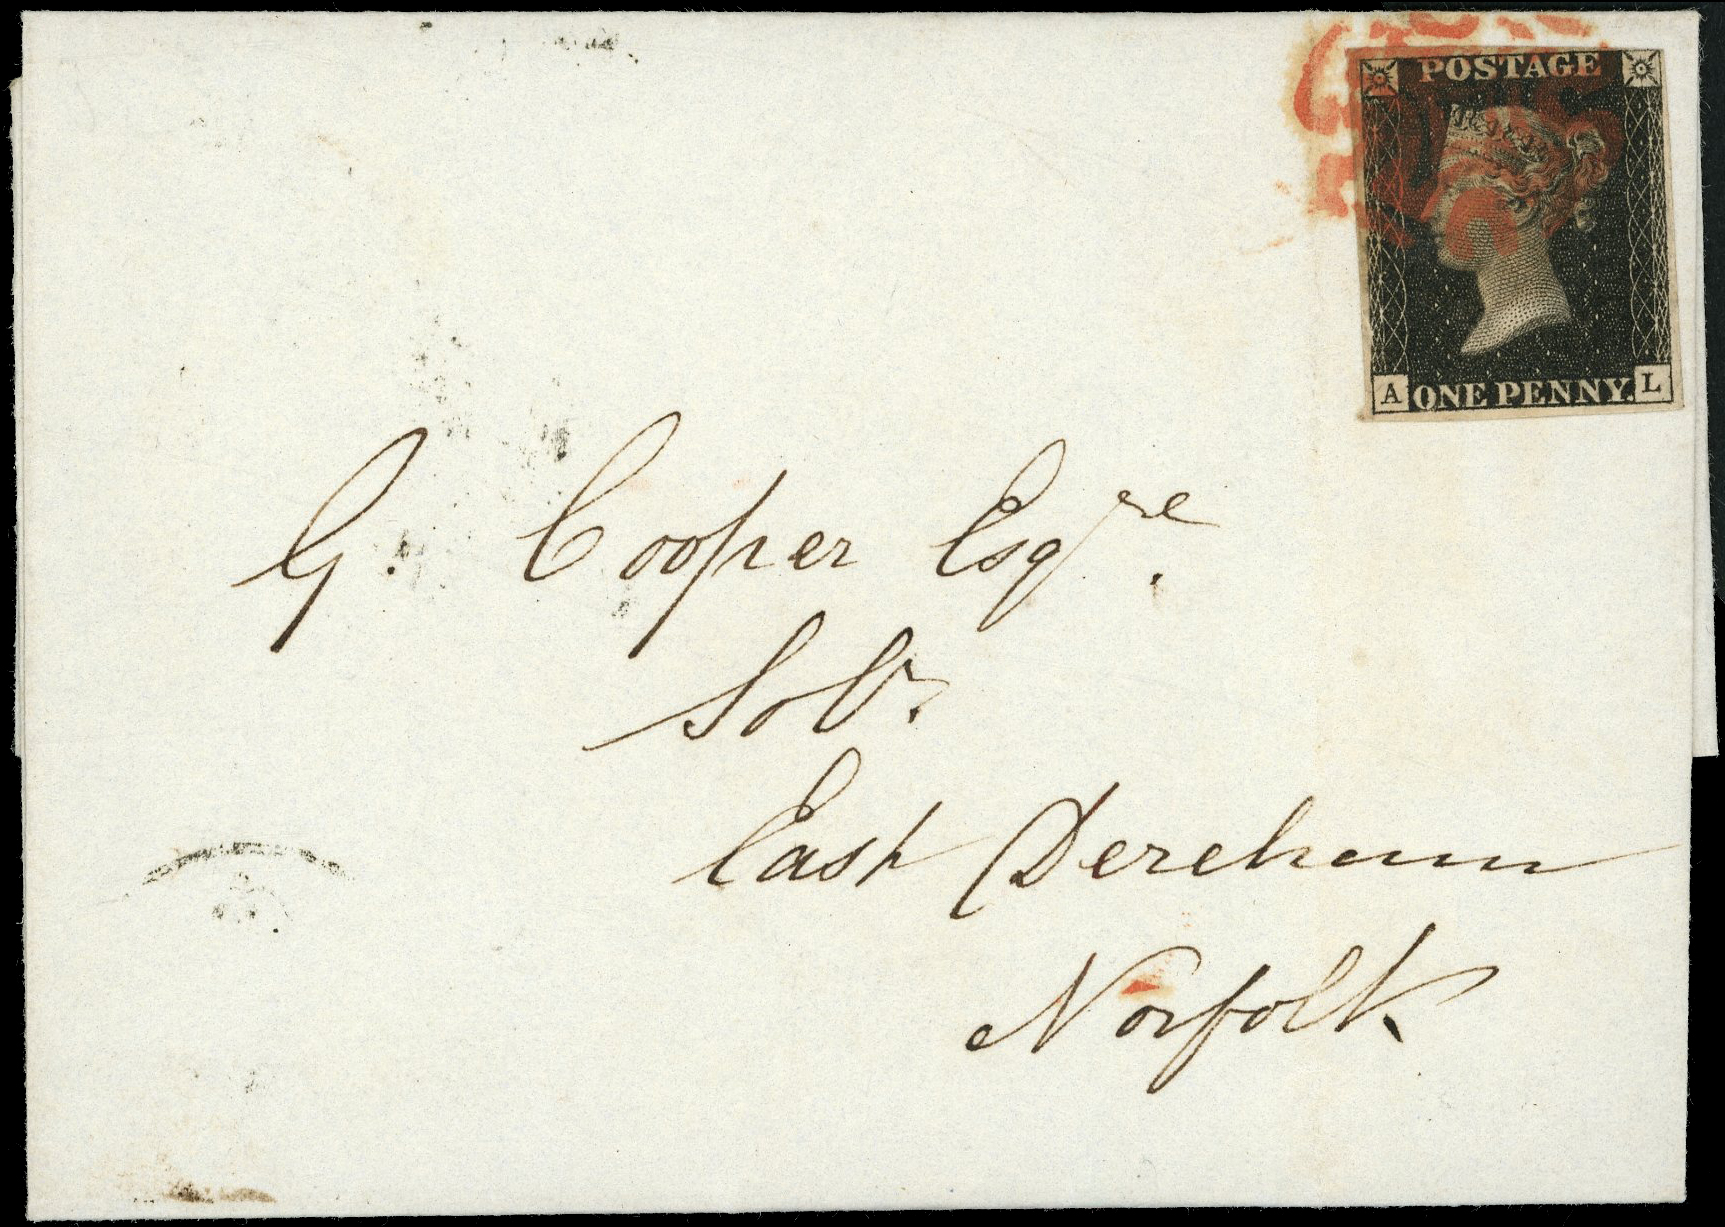 POSTAGE
A ONE PENNY. L
G. Cooper Esqre.
Solr.
East Dereham
Norfolk